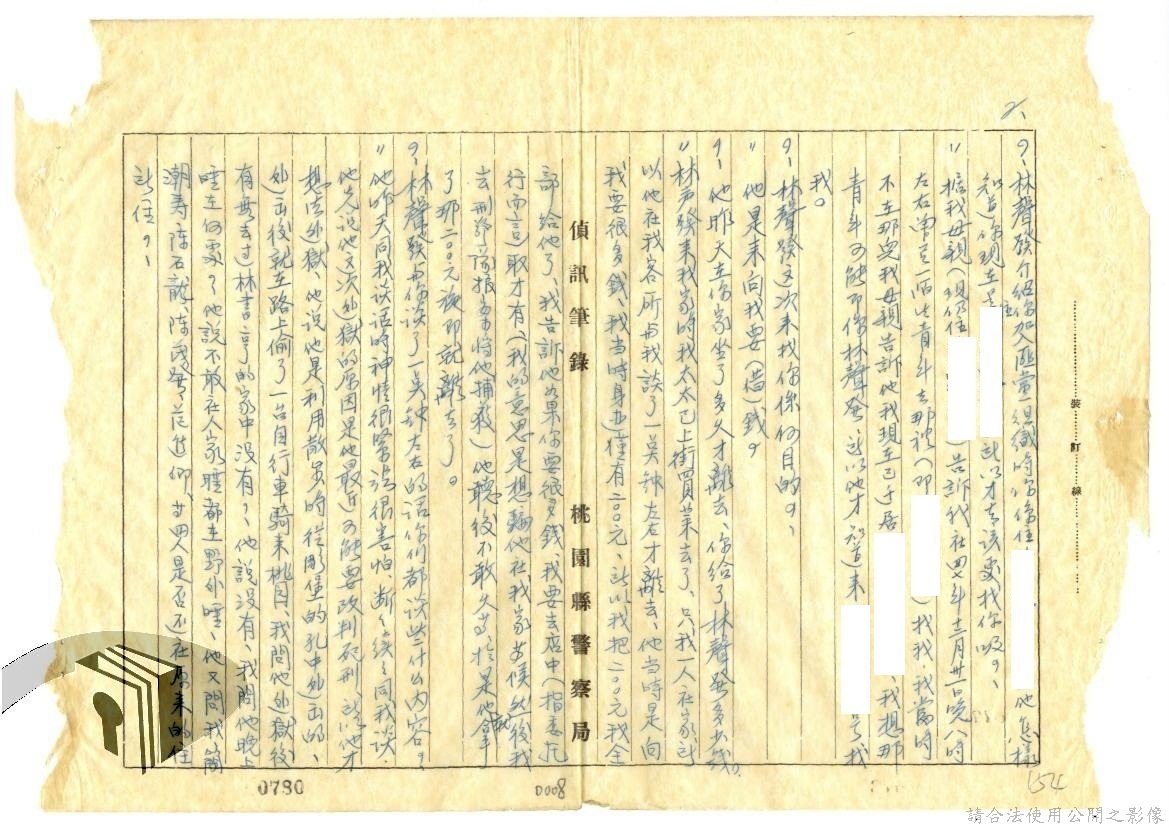 2、
問、林聲發介紹你加入匪黨組織時你住　他怎樣
知道你現在是住　所以才去該處找你呢？、
〃據我母親（現仍住　）告訴我在四七年十二月卅一日晚八時
左右單昱一陌生青年去那裡（即　）找我，我當時
不在那兒我母親告訴他我現在已于居　、我想那
青年可能即係林聲發、所以他才知道來　是我
我。
問、林聲發這次來找你係何目的？、
〃他是來向我要（借）錢。
問、他昨天在你家坐了多久才離去、你給了林聲發多少錢？、
〃林聲發來我家時我太太已上街買菜去了、只我一人在家、所
以他在我客所與我談了一點钟左右才離去、他当時是向
我要很多錢、我当時身上僅有二〇〇元、所以我把二〇〇元我全
偵訊筆錄　桃園縣警察局
部給他了、我告訴他如果你要很多錢、我要去店中（指委托
行而言）取才有（我的意思是想騙他在我家等候然後我
去刑警隊报案將他捕获）他聽後不敢久等、於是他拿
了那二〇〇元後即就離去了。
問、林聲發與你談了一点钟左右的話你們都谈些什么内容？、
〃他昨天同我談话時的神情很緊張很害怕、断斷續續同我談、
他先说他這次越獄的原因是他最近可能要改判死刑、所以他才
想法越獄、他说他是利用散步時從雕堡的孔中越出的、
越出後就在路上偷了一台自行車騎來桃園、我問他越獄後
有無去过林書亨的家中没有？、他説没有、我問他晚上
睡在何處？他説不敢在人家睡都在野外睡、他又問我簡
潮寿、陈石龍、陈茂發、范進仰、廿四人是否不在原来的住
所住？、
裝訂線
0780
D008
154
請合法使用公開之影像